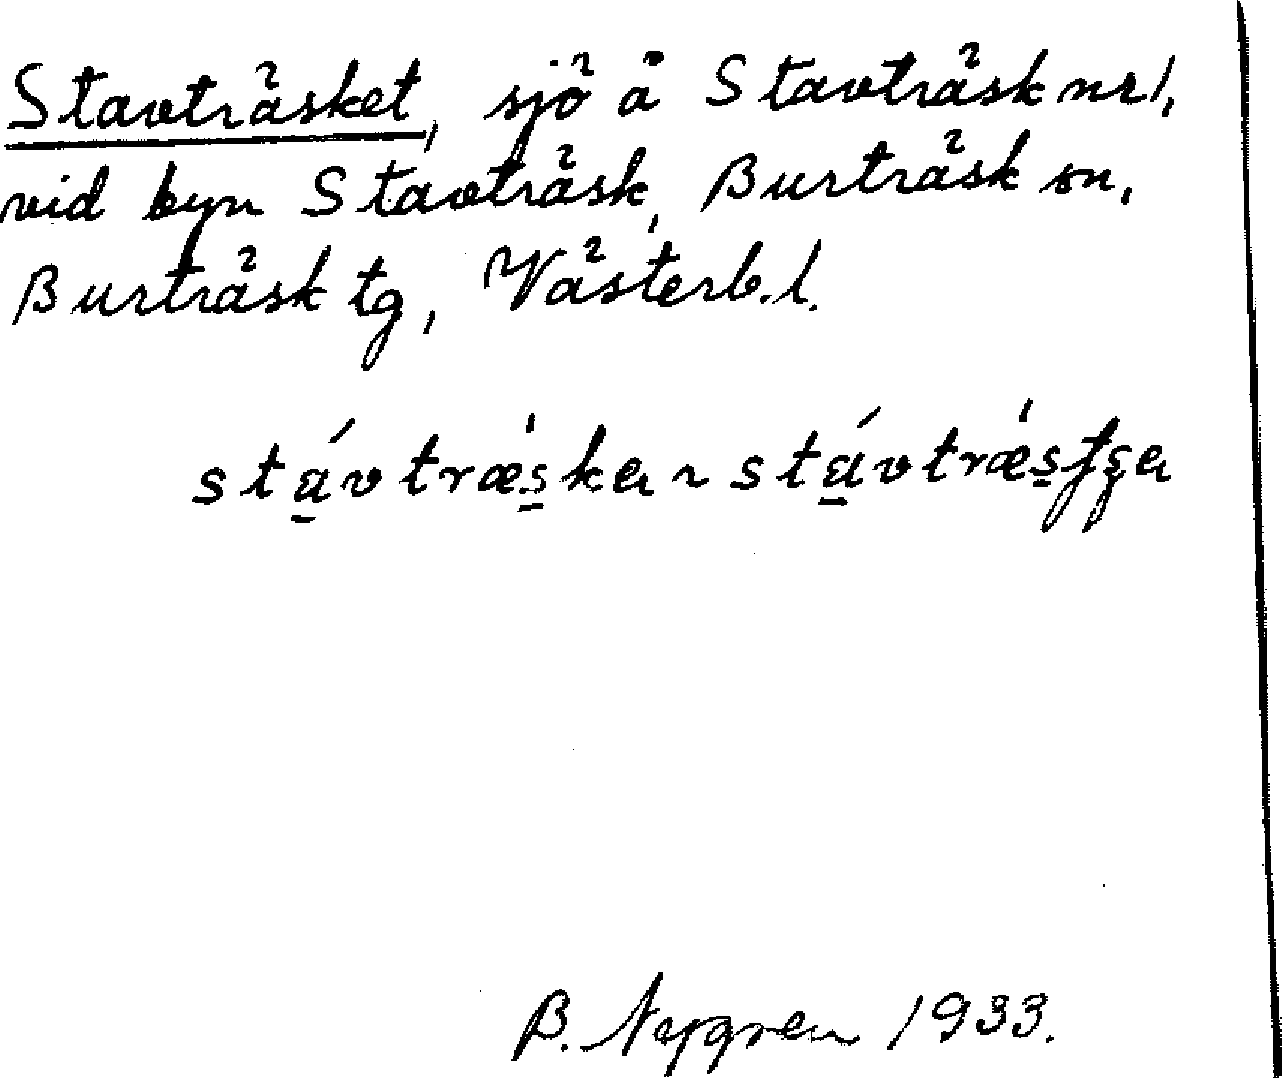 Stavträsket, sjö å Stavträsk nr 1,
vid byn Stavträsk, Burträsk sn,
Burträsk tg, Västerb. l.
stávtræ̀skeı ~ stávtræ̀sʃʂeı
B. Nygren 1933.